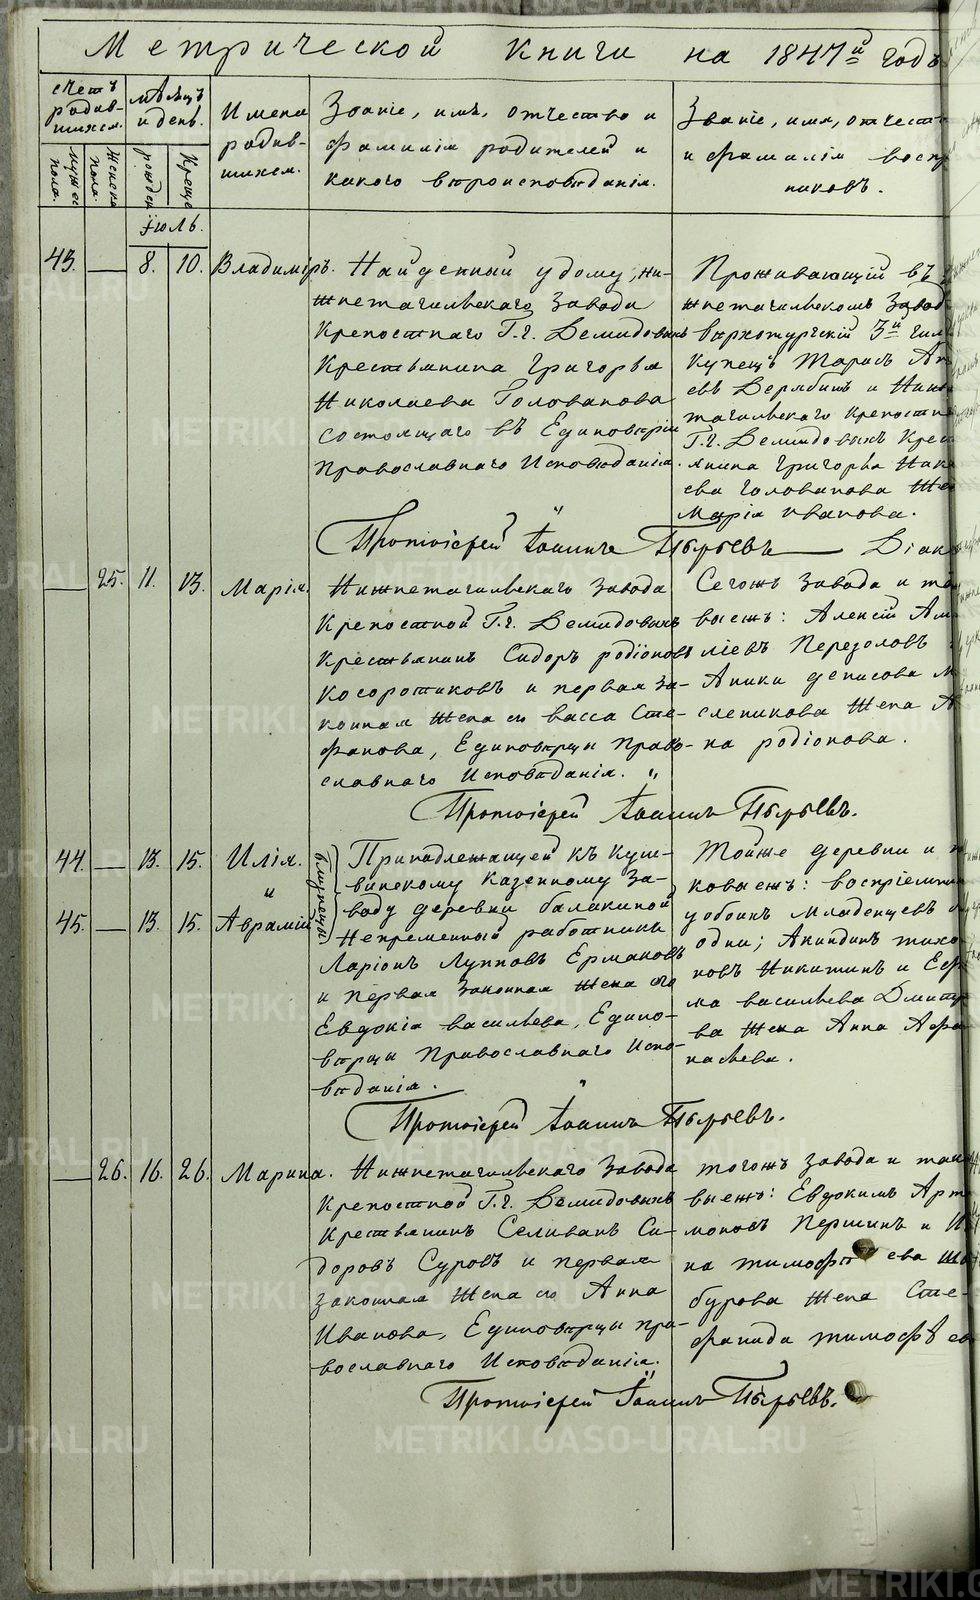 Метрической Книги на 1847й годъ
счетъ родив- шихся.
мужес пола.
Женска пола.
мѣсяцъ и день.
рожден
Креще
Имена родив- шихся.
Званіе, имя, отчество и
фамилія родителей и
какого вѣроисповѣданія.
Званіе, имя, отчест
и фамилія восп
никовъ.
Іюль.
43. 8. 10. Владиміръ.
Найденный у дому, ни-
жнетагильскаго Завода
Крепостнаго Г.г. Демидовыхъ
Крестьянина Григорья
Николаева Голованова
состоящаго въ Единовѣріи
Православнаго Исповѣданія.
Проживающій въ
жнетагильскомъ Завод
верхотурскій 3й гил
Купецъ Тарасъ
евъ Верябинъ и Ниж
тагильскаго крепостн
Г.г. Демидовыхъ Крес
янина Григорья Ник
ева Голованова Же
Марія Иванова.
Протоіерей Іоаннъ Пырьевъ Діак
25. 11. 13. Марія.
Нижнетагильскаго Завода
Крепостной Г.г. Демидовыхъ
Крестьянинъ Сидоръ родіоновъ
Косоротиковъ и первая за-
конная Жена его васса Сте-
фанова, Единовѣрцы Право-
славнаго Исповѣданія.
Сегожъ Завода и та
выежъ: Алексій Ам
ліевъ Перезоловъ
Аники денисова М
слепикова Жена А
на родіонова.
Протоіерей Іоаннъ Пырьевъ.
44. 13. 15. Илія.
45. 13. 15. Аврамій
близнецы.
Принадлежащей къ Куш-
винскому Казенному За-
воду деревни балакиной
Непременный работникъ
Ларіонъ Лупповъ Ермаковъ
и первая Законная Жена его
Евдокія васильева, Едино-
верцы Православнаго Испо-
вѣданія.
Тойже деревни и т
ковыежъ: воспріемни
у обоихъ младенцевъ
одни; Акиндинъ тихо
новъ Никитинъ и Еф
ма васильева Дмитр
ва Жена Анна Афа
насьева.
Протоіерей Іоаннъ Пырьевъ.
26. 16. 26. Марина.
Нижнетагильскаго Завода
Крепостной Г.г. Демидовыхъ
Крестьянинъ Селиванъ Си-
доровъ Суровъ и первая
законная Жена его Анна
Иванова, Единовѣрцы пра-
вославнаго Исповѣданія.
тогожъ Завода и так
выежъ: Евдокимъ Арт
моновъ Першинъ и И
на тимофѣева Ша
бурова Жена Сте-
фанида тимофѣев
Протоіерей Іоаннъ Пырьевъ.
METRIKI.GASO-URAL.RU